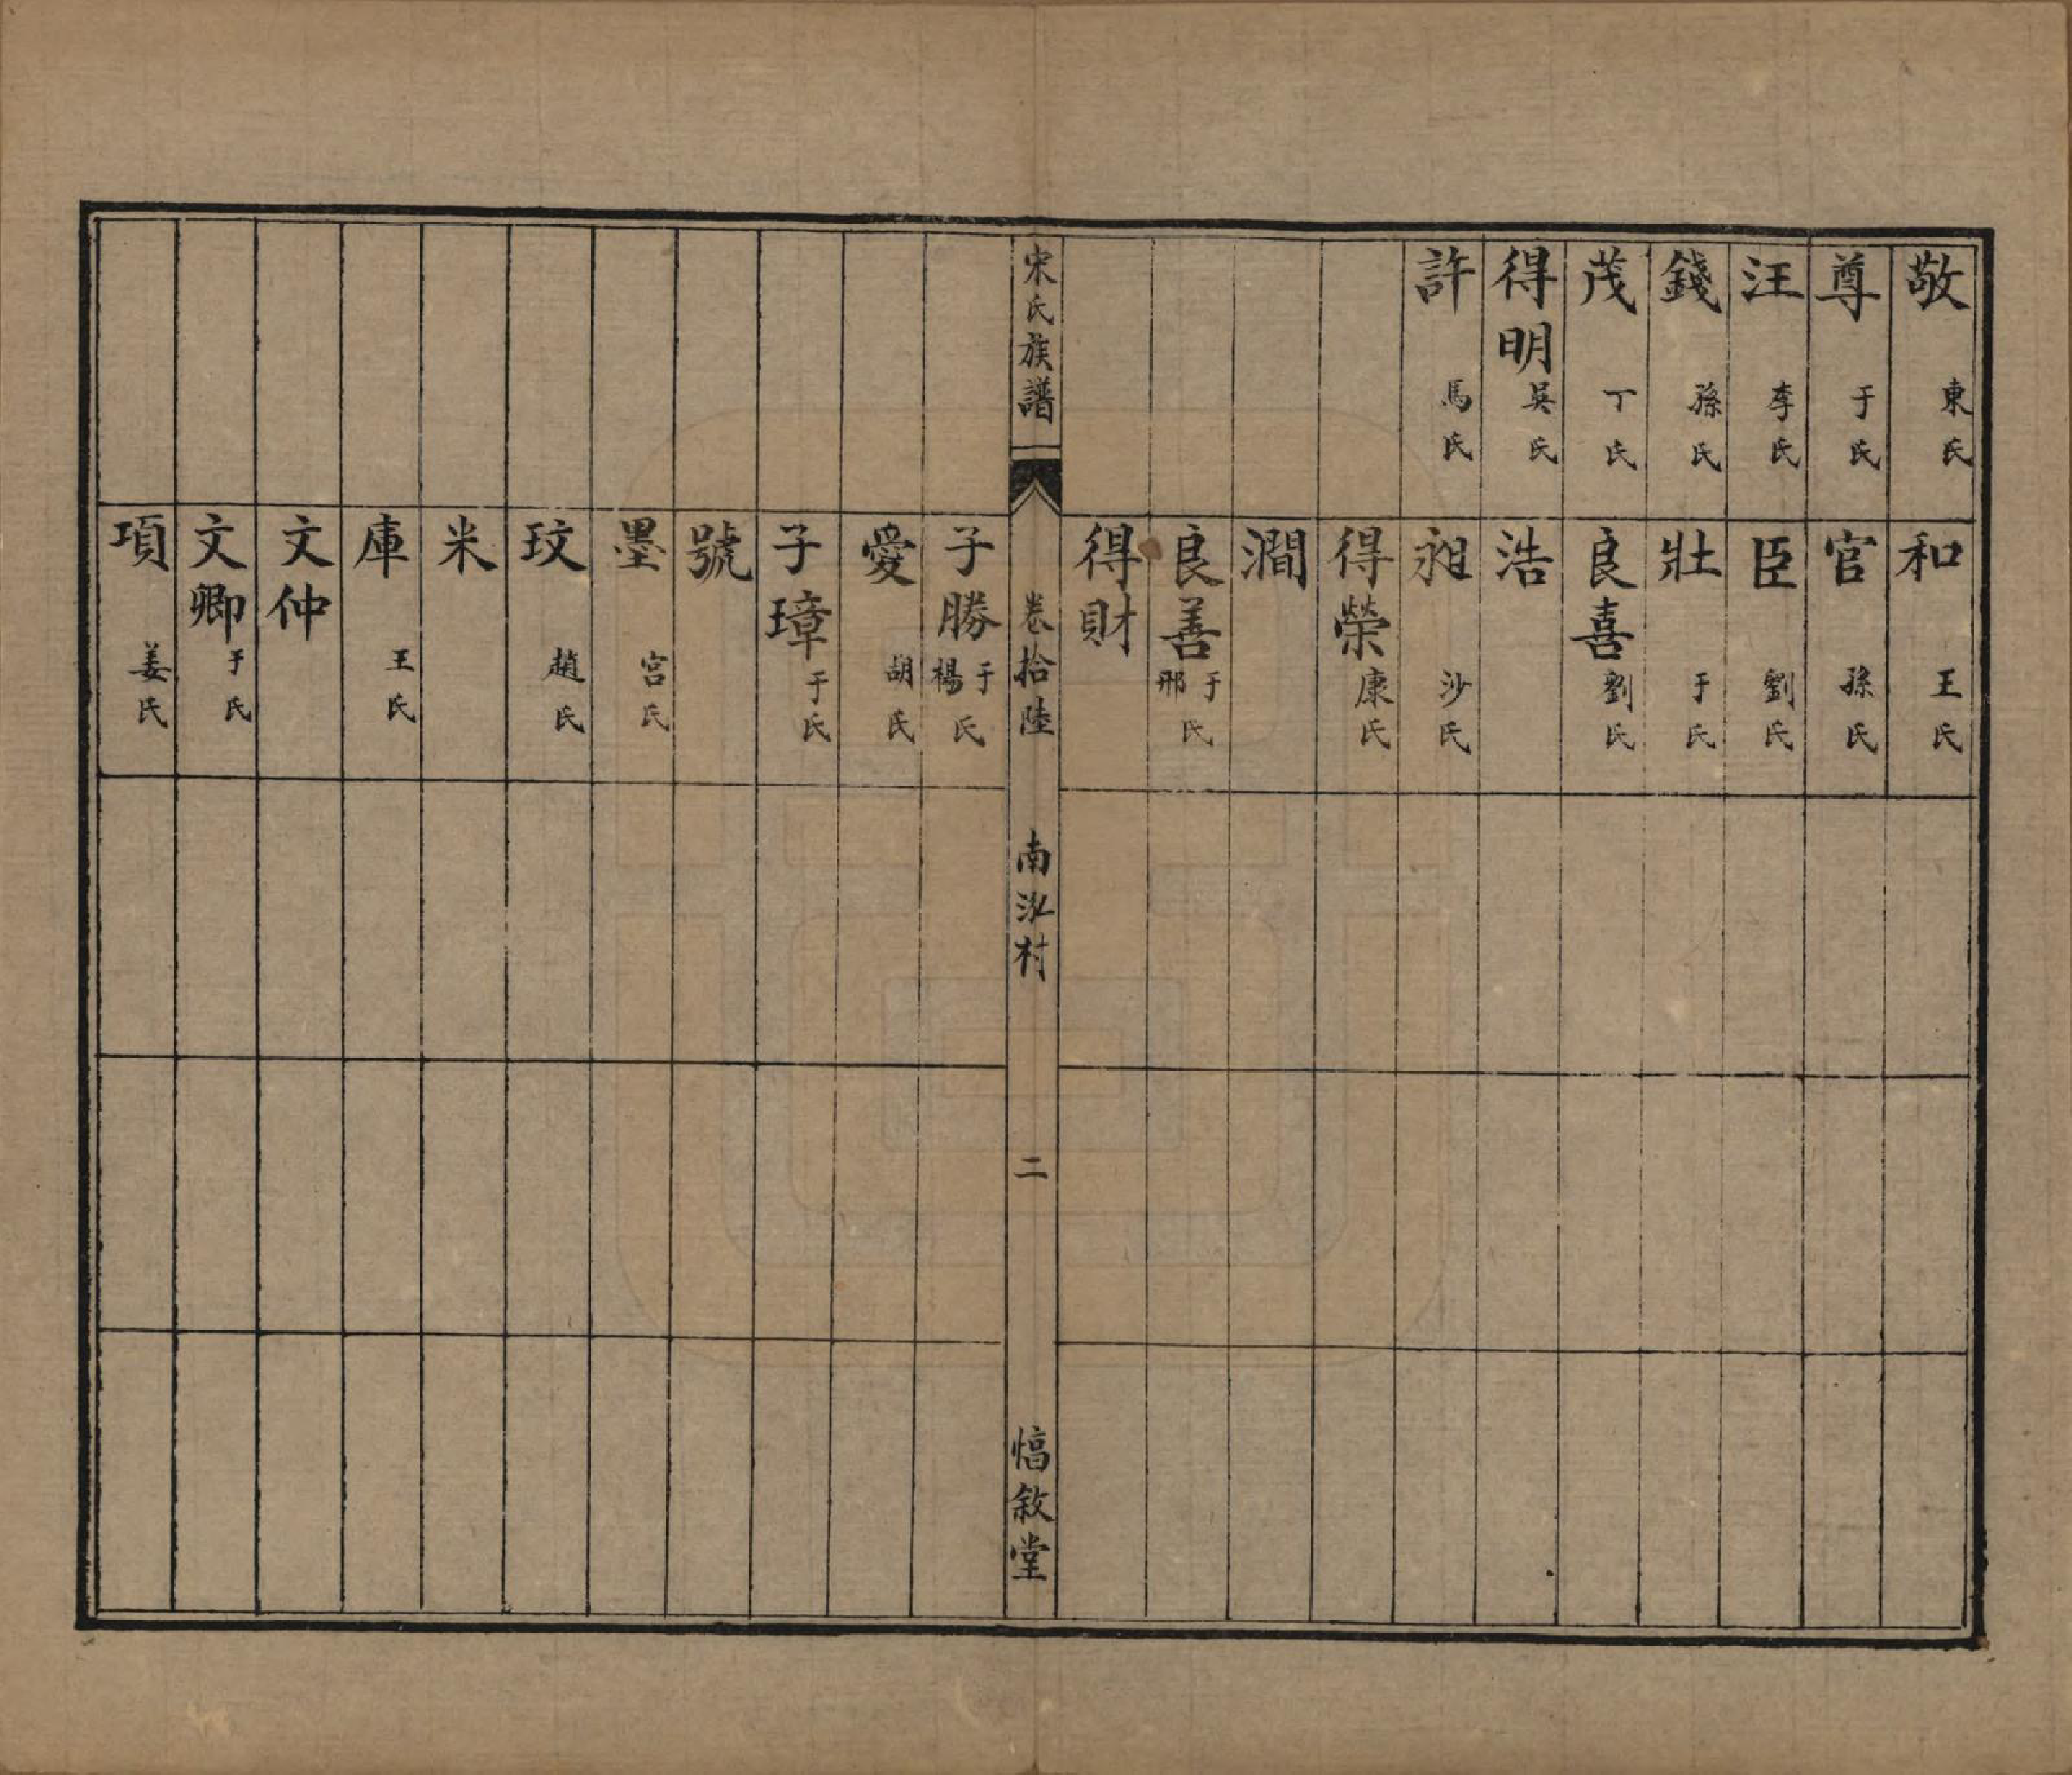 敬 東氏
尊 于氏
汪 李氏
錢 孫氏
茂 丁氏
得明 吳氏
許 馬氏
和 王氏
官 孫氏
臣 劉氏
壯 于氏
良喜 劉氏
浩
昶 沙氏
得榮 康氏
澗
良善 于邢氏
得財
宋氏族譜 卷拾陸 南泓村 二 愊敘堂
子勝 于楊氏
愛 胡氏
子璋 于氏
號
墨 宮氏
玟 趙氏
米
庫 王氏
文仲
文卿 于氏
項 姜氏